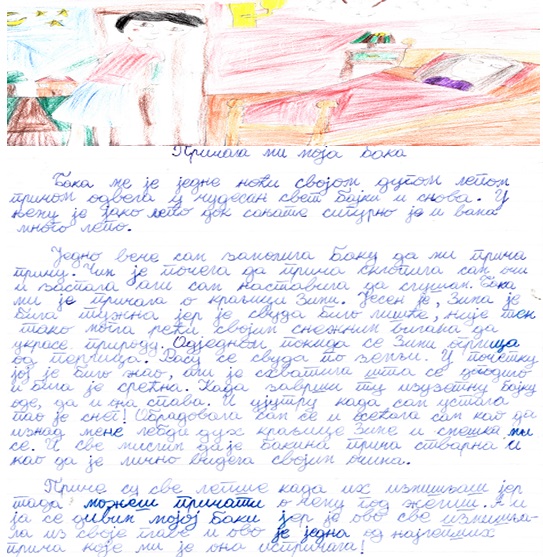 Причала ми моја бака
Бака ме је једне ноћи својом дугом лепом
причом одвела у чудесан свет бајки и снова. У
њему је јако лепо док сањате сигурно је и вама
много лепо.
Једно вече сам замолила баку да ми прича
причу. Чим је почела да прича склопила сам очи
и заспала али сам наставила да слушам. Бака
ми је причала о краљици Зими. Јесен је, Зима је
била тужна јер је свуда било лишће, није
тако могла рећи својим снежним вилама да
украсе природу. Одједном покида се Зими огрлица
од перлица. Падају се свуда по земљи. У почетку
јој је било жао, али је схватила шта се догодило
и била је срећна. Када заврши ту изузетну бајку
оде, да и она спава. И ујутру када сам устала
пао је снег! Обрадовала сам се и осећала сам као да
изнад мене лебди дух краљице Зиме и смешка ми
се. И све мислим да је бакина прича стварна и
као да је лично видела својим очима.
Приче су све лепше када их измишљаш јер
тада можеш причати о чему год желиш. А и
ја се дивим мојој баки јер је ово све измишљала
из своје главе и ово је једна од најлепших
прича које ми је она испричала!